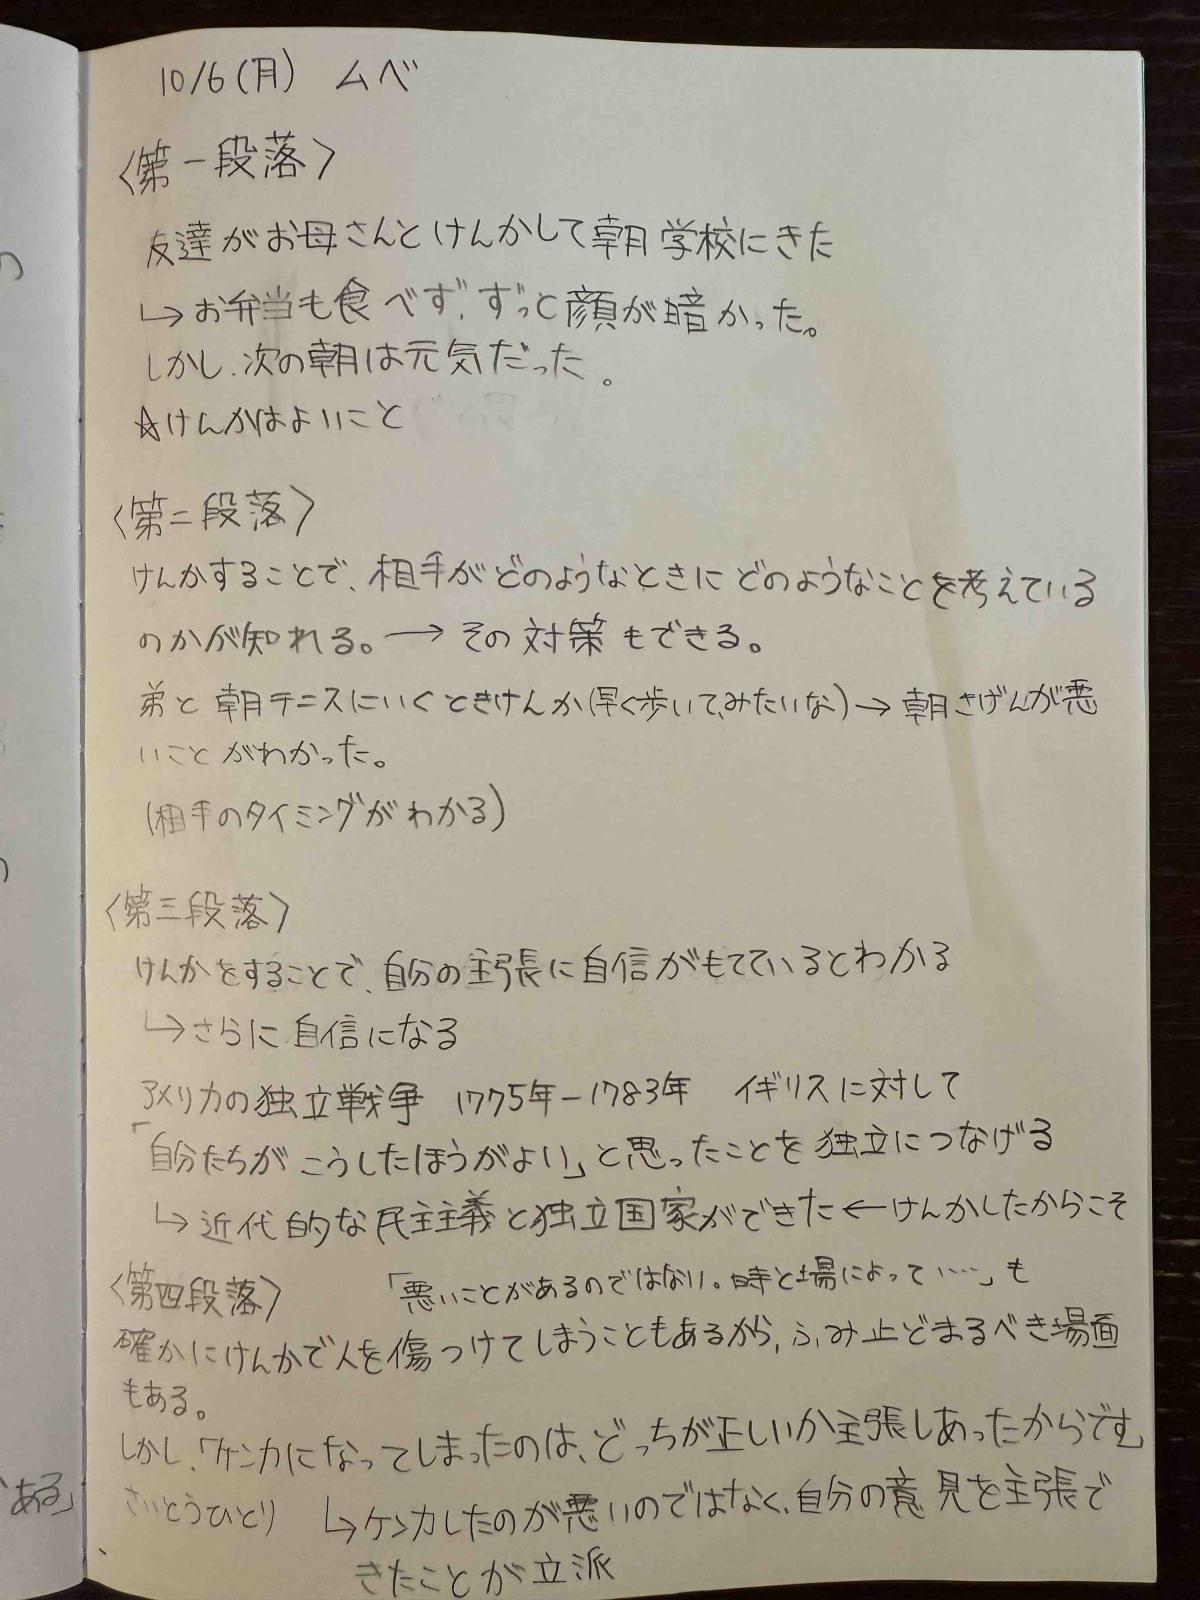 10/6(月) ムベ
〈第一段落〉
友達がお母さんとけんかして朝学校にきた
↳お弁当も食べず、ずっと顔が暗かった。
しかし、次の朝は元気だった。
☆けんかはよいこと
〈第二段落〉
けんかすることで、相手がどのようなときにどのようなことを考えている
のかが知れる。→その対策もできる。
弟と朝テニスにいくときけんか(早く歩いて、みたいな)→朝きげんが悪
いことがわかった。
(相手のタイミングがわかる)
〈第三段落〉
けんかをすることで、自分の主張に自信がもてているとわかる
↳さらに自信になる
アメリカの独立戦争 1775年-1783年 イギリスに対して
「自分たちがこうしたほうがよい」と思ったことを独立につなげる
↳近代的な民主主義と独立国家ができた←けんかしたからこそ
〈第四段落〉 「悪いことがあるのではない。時と場によって……」も
確かにけんかで人を傷つけてしまうこともあるから、ふみ止どまるべき場面
もある。
しかし、ケンカになってしまったのは、どっちが正しいか主張しあったからです。
さいとうひとり ↳ケンカしたのが悪いのではなく、自分の意見を主張で
きたことが立派
ある」